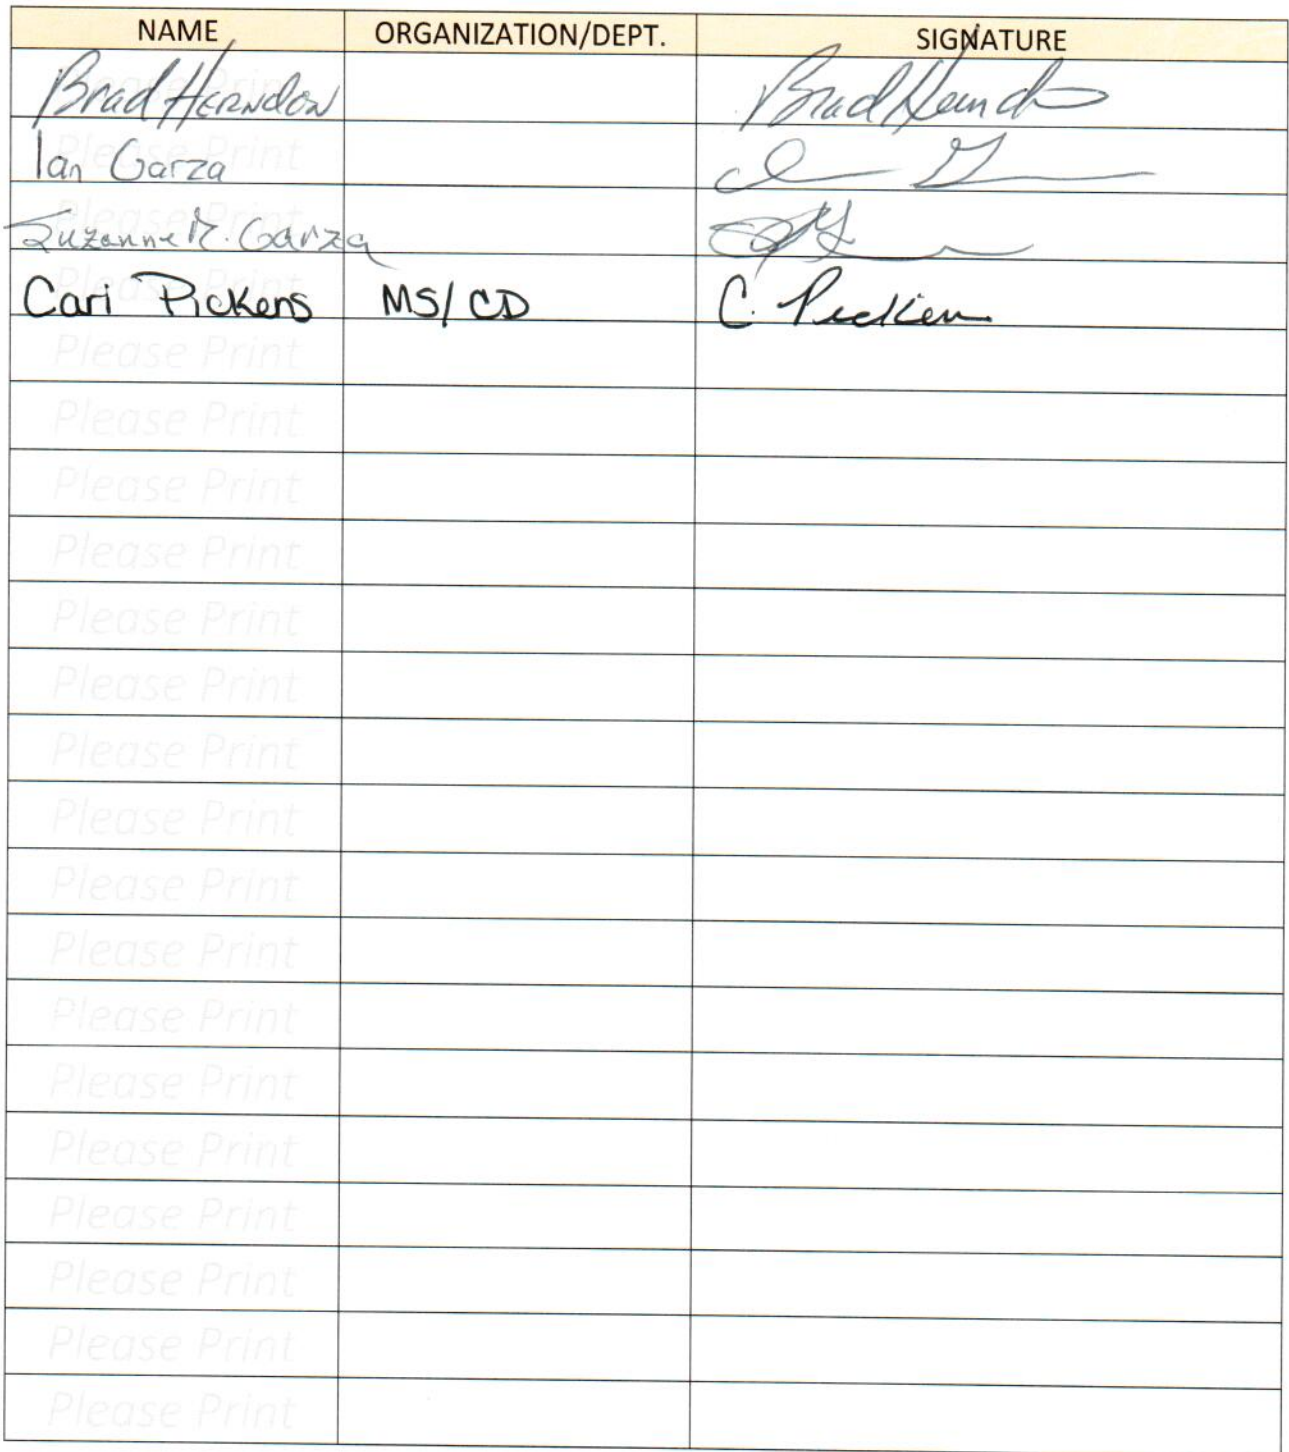 NAME ORGANIZATION/DEPT. SIGNATURE
Please Print
Brad Herndon Brad
Please Print
Ian Garza
Please Print
Suzanne M. Garza
Please Print
Cari Pickens MS/CD C. Picken
Please Print
Please Print
Please Print
Please Print
Please Print
Please Print
Please Print
Please Print
Please Print
Please Print
Please Print
Please Print
Please Print
Please Print
Please Print
Please Print
Please Print